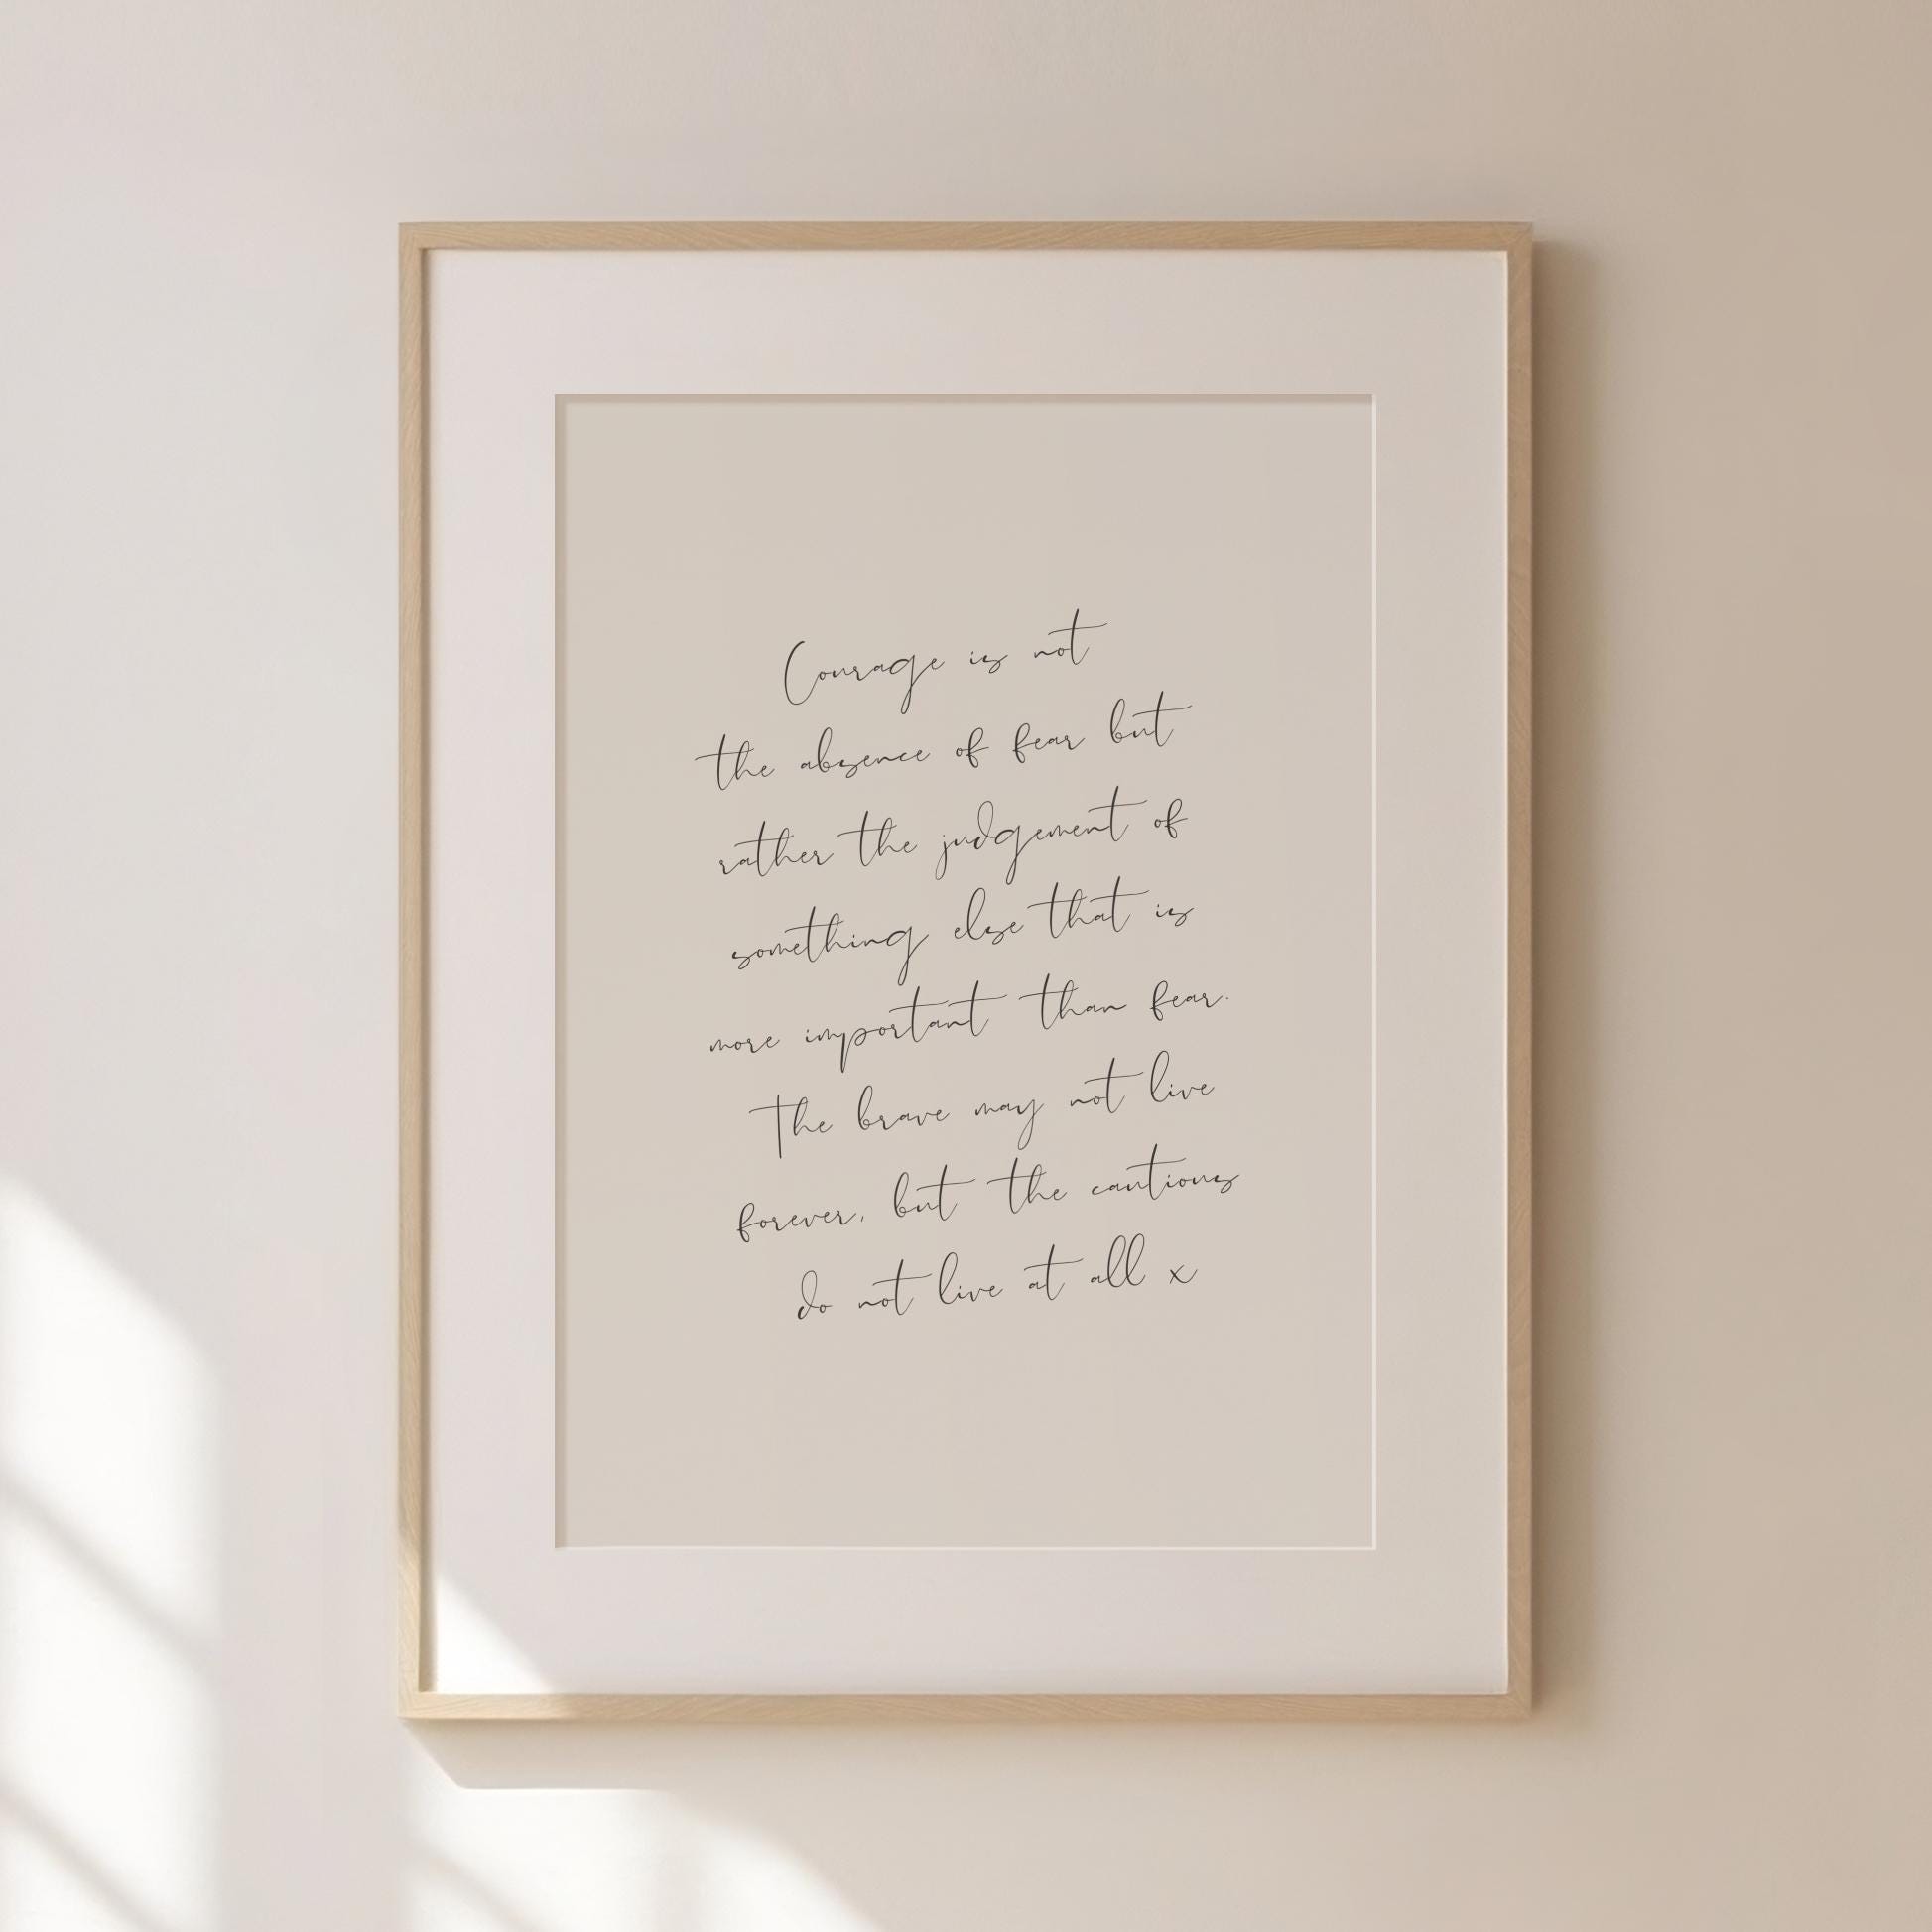 Courage is not
the absence of fear but
rather the judgement of
something else that is
more important than fear.
The brave may not live
forever, but the cautious
do not live at all x